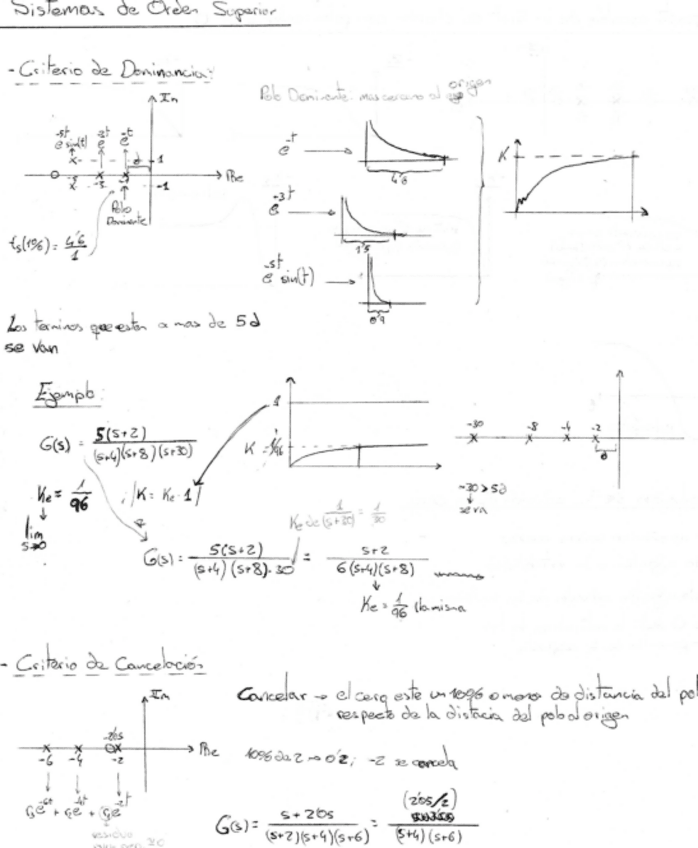 Sistemas de Orden Superior
- Criterio de Dominancia:
Polo Dominante: mas cercano al origen
Im
e^-5t sin(t) e^-3t e^-t
d 1
-5 -3 -1 Re
-1
Polo
Dominante
ts(1%) = 4'6/1
e^-t → 4'6
e^-3t → 1'5
e^-5t sin(t) → 0'9
K
Los terminos que esten a mas de 5d
se van
Ejemplo:
G(s) = 5(s+2)/(s+4)(s+8)(s+30)
1
K = 1/96
-30 -8 -4 -2
d
-30 > 5d
se va
Ke = 1/96 ; /K = Ke·1/
lim s→0
Ke de 1/(s+30) = 1/30
G(s) = 5(s+2)/(s+4)(s+8)·30 = s+2/6(s+4)(s+8)
Ke = 1/96 (la misma
- Criterio de Cancelación
Im
Cancelar → el cero este un 10% o menos de distancia del pol
respecto de la distacia del polo al origen
-2'05
-6 -4 -2 Re
10% de 2 → 0'2; -2 se cancela
e^-6t + e^-4t + e^-2t
residuo
G(s) = s+2'05/(s+2)(s+4)(s+6) = (2'05/2)/(s+4)(s+6)